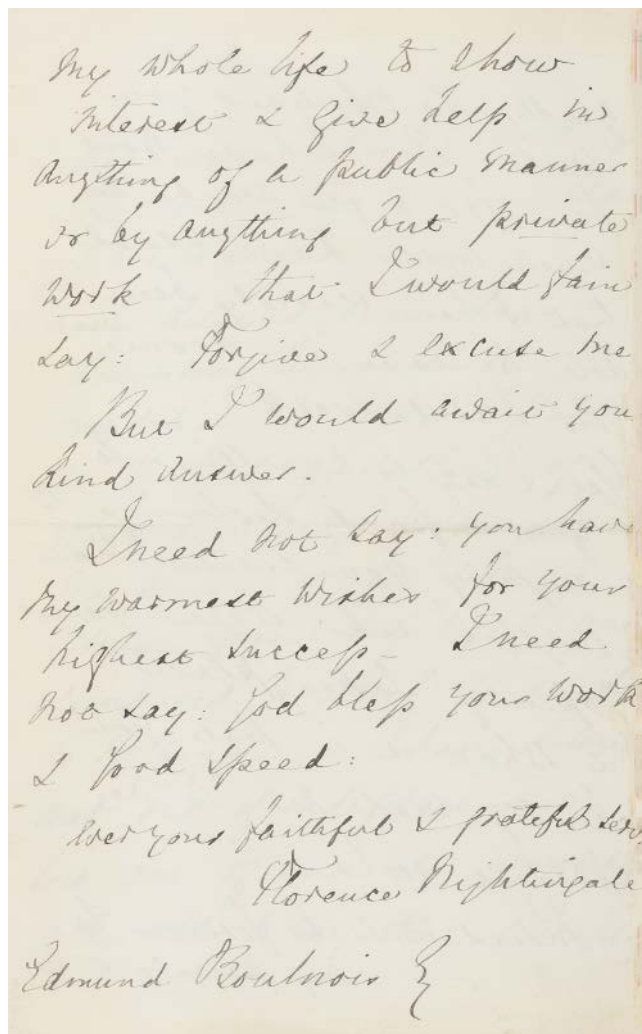 my whole life to show
interest & give help in
anything of a public manner
or by anything but private
work that I would fain
say: Forgive & excuse me
But I would await you
kind answer.
I need not say: you have
my warmest wishes for your
highest success – I need
not say: God bless your work
& Good speed:
ever your faithful & grateful serv.
Florence Nightingale
Edmund Boulnois